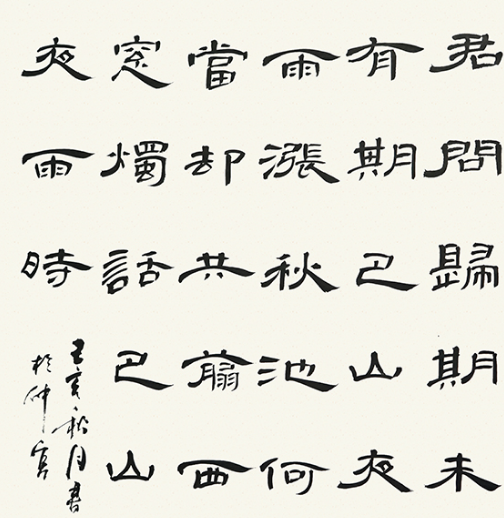 君問歸期未
有期巴山夜
雨漲秋池何
當却共翦西
窓燭話巴山
夜雨時
亥秋月書
於仲宫